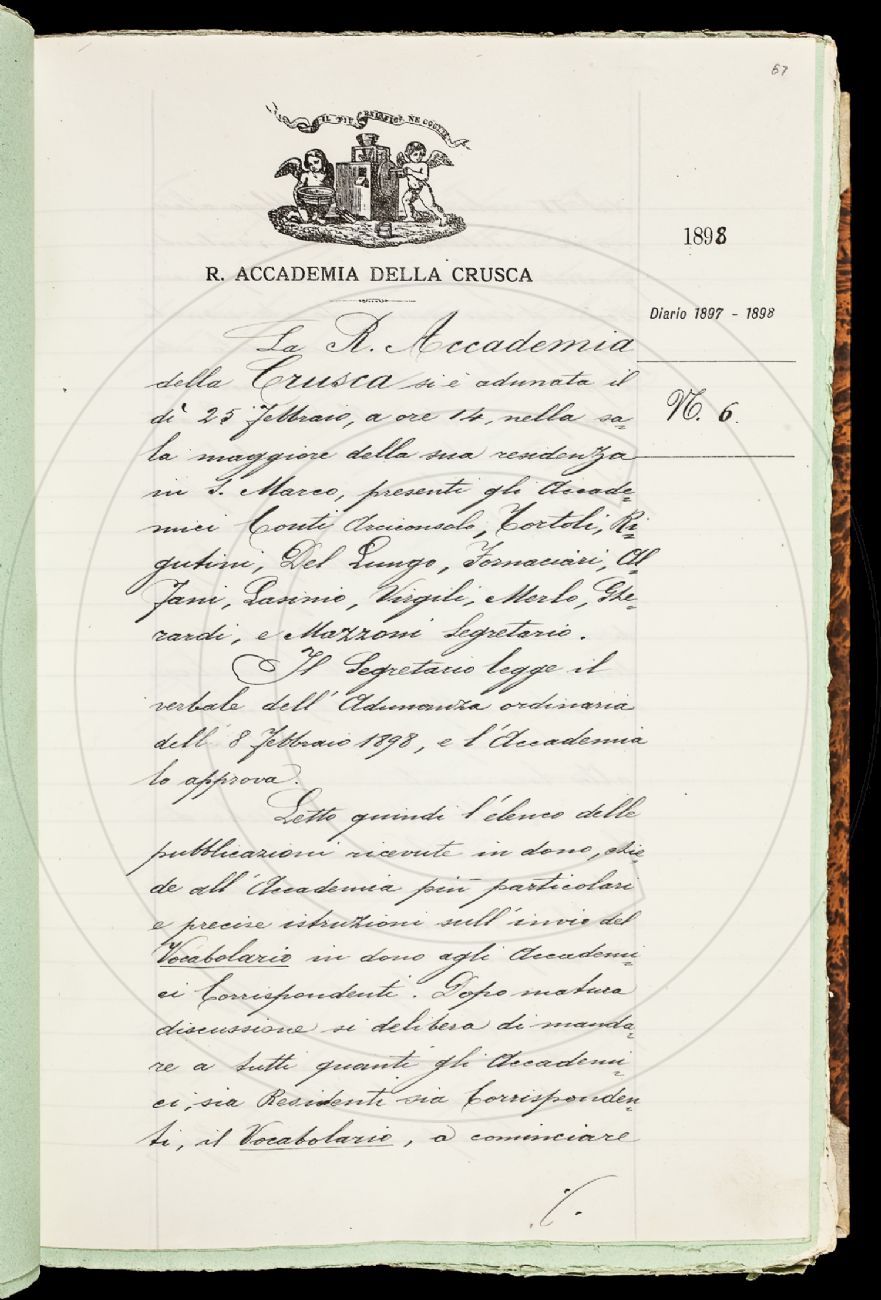 67
IL PIÙ BEL FIOR NE COGLIE
R. ACCADEMIA DELLA CRUSCA
1898
Diario 1897 - 1898
N. 6.
La R. Accademia
della Crusca si è adunata il
dì 25 Febbraio, a ore 14, nella sa=
la maggiore della sua residenza
in S. Marco, presenti gli Accade=
mici Conti Arciconsolo, Tortoli, Ri=
gutini, Del Lungo, Fornaciari, Al=
fani, Lasinio, Virgili, Merlo, Ghe=
rardi, e Mazzoni Segretario.
Il Segretario legge il
verbale dell'Adunanza ordinaria
dell'8 Febbraio 1898, e l'Accademia
lo approva.
Letto quindi l'elenco delle
pubblicazioni ricevute in dono, chie=
de all'Accademia più particolari
e precise istruzioni sull'invio del
Vocabolario in dono agli Accademi=
ci Corrispondenti. Dopo matura
discussione si delibera di manda=
re a tutti quanti gli Accademi=
ci, sia Residenti sia Corrisponden=
ti, il Vocabolario, a cominciare
./.